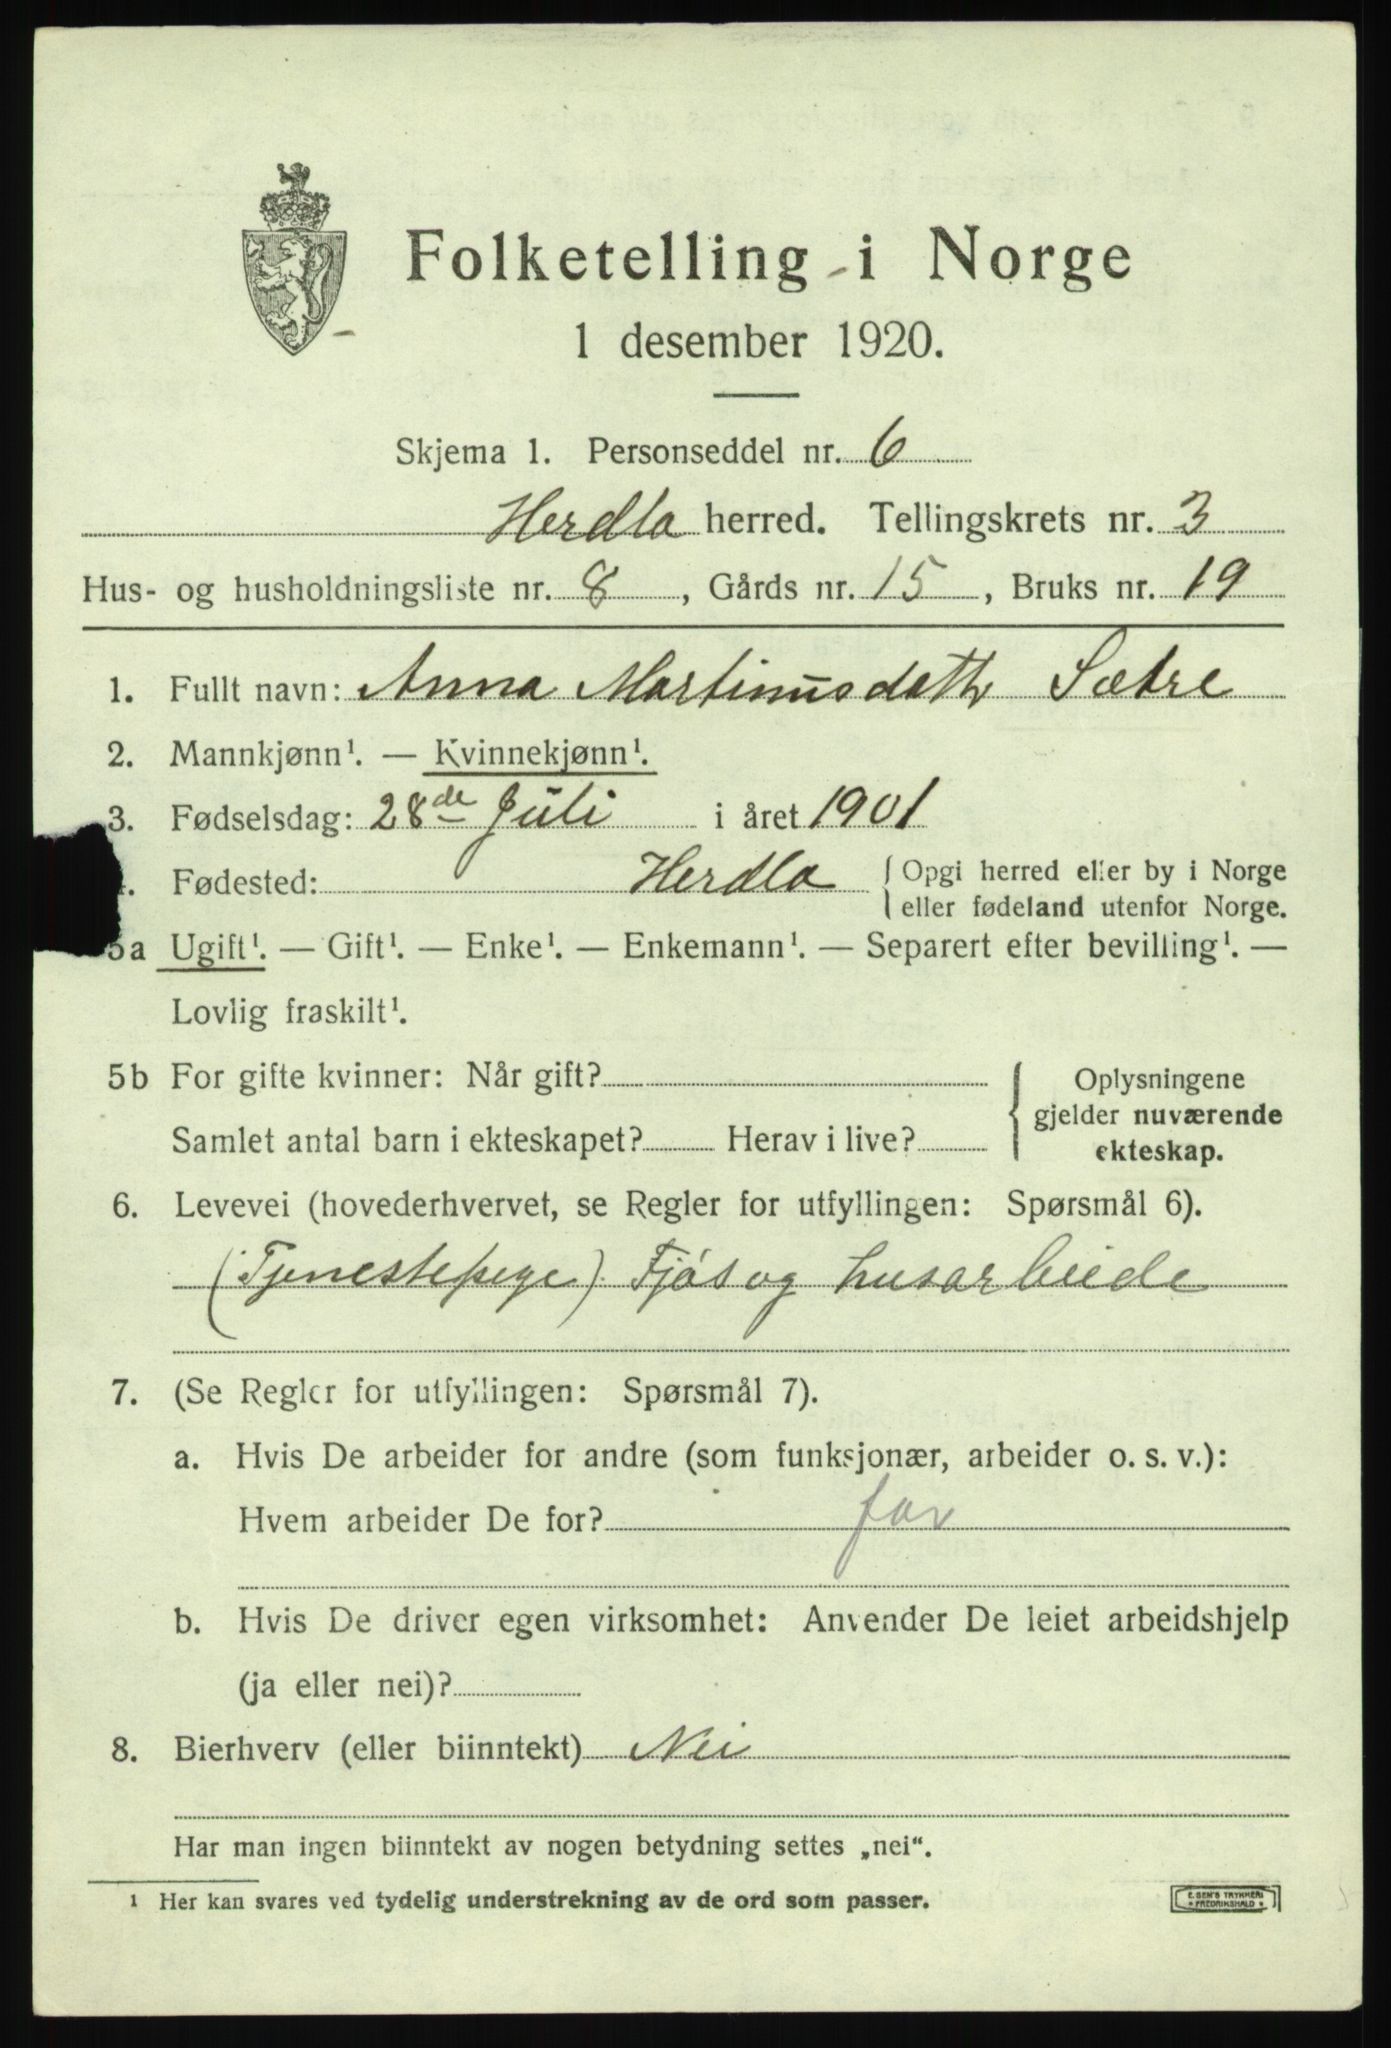 Folketelling i Norge
1 desember 1920.
Skjema 1. Personseddel nr. 6
Herdla herred. Tellingskrets nr. 3
Hus- og husholdningsliste nr. 8, Gårds nr. 15, Bruks nr. 19
1. Fullt navn: Anna Martinusdattr Sætre
2. Mannkjønn¹. — Kvinnekjønn¹.
3. Fødselsdag: 28de Juli i året 1901
Fødested: Herdla { Opgi herred eller by i Norge
eller fødeland utenfor Norge.
5a Ugift¹. — Gift¹. — Enke¹. — Enkemann¹. — Separert efter bevilling¹. —
Lovlig fraskilt¹.
5b For gifte kvinner: Når gift? { Oplysningene
gjelder nuværende
Samlet antal barn i ekteskapet? Herav i live? ekteskap.
6. Levevei (hovederhvervet, se Regler for utfyllingen: Spørsmål 6).
(Tjenestepige) Fjös og husarbeide
7. (Se Regler for utfyllingen: Spørsmål 7).
a. Hvis De arbeider for andre (som funksjonær, arbeider o. s. v.):
Hvem arbeider De for? far
b. Hvis De driver egen virksomhet: Anvender De leiet arbeidshjelp
(ja eller nei)?
8. Bierhverv (eller biinntekt) Nei
Har man ingen biinntekt av nogen betydning settes „nei“.
¹ Her kan svares ved tydelig understrekning av de ord som passer.
E. SEM'S TRYKKERI
* FREDRIKSHALD *